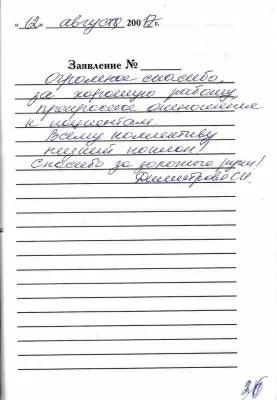 "12" августа 2007 г.
Заявление №
Огромное спасибо,
за хорошую работу
прекрасное отношение
к пациентам.
Всему коллективу
низкий поклон!
Спасибо за дорогого
Димитрова С.И.
26